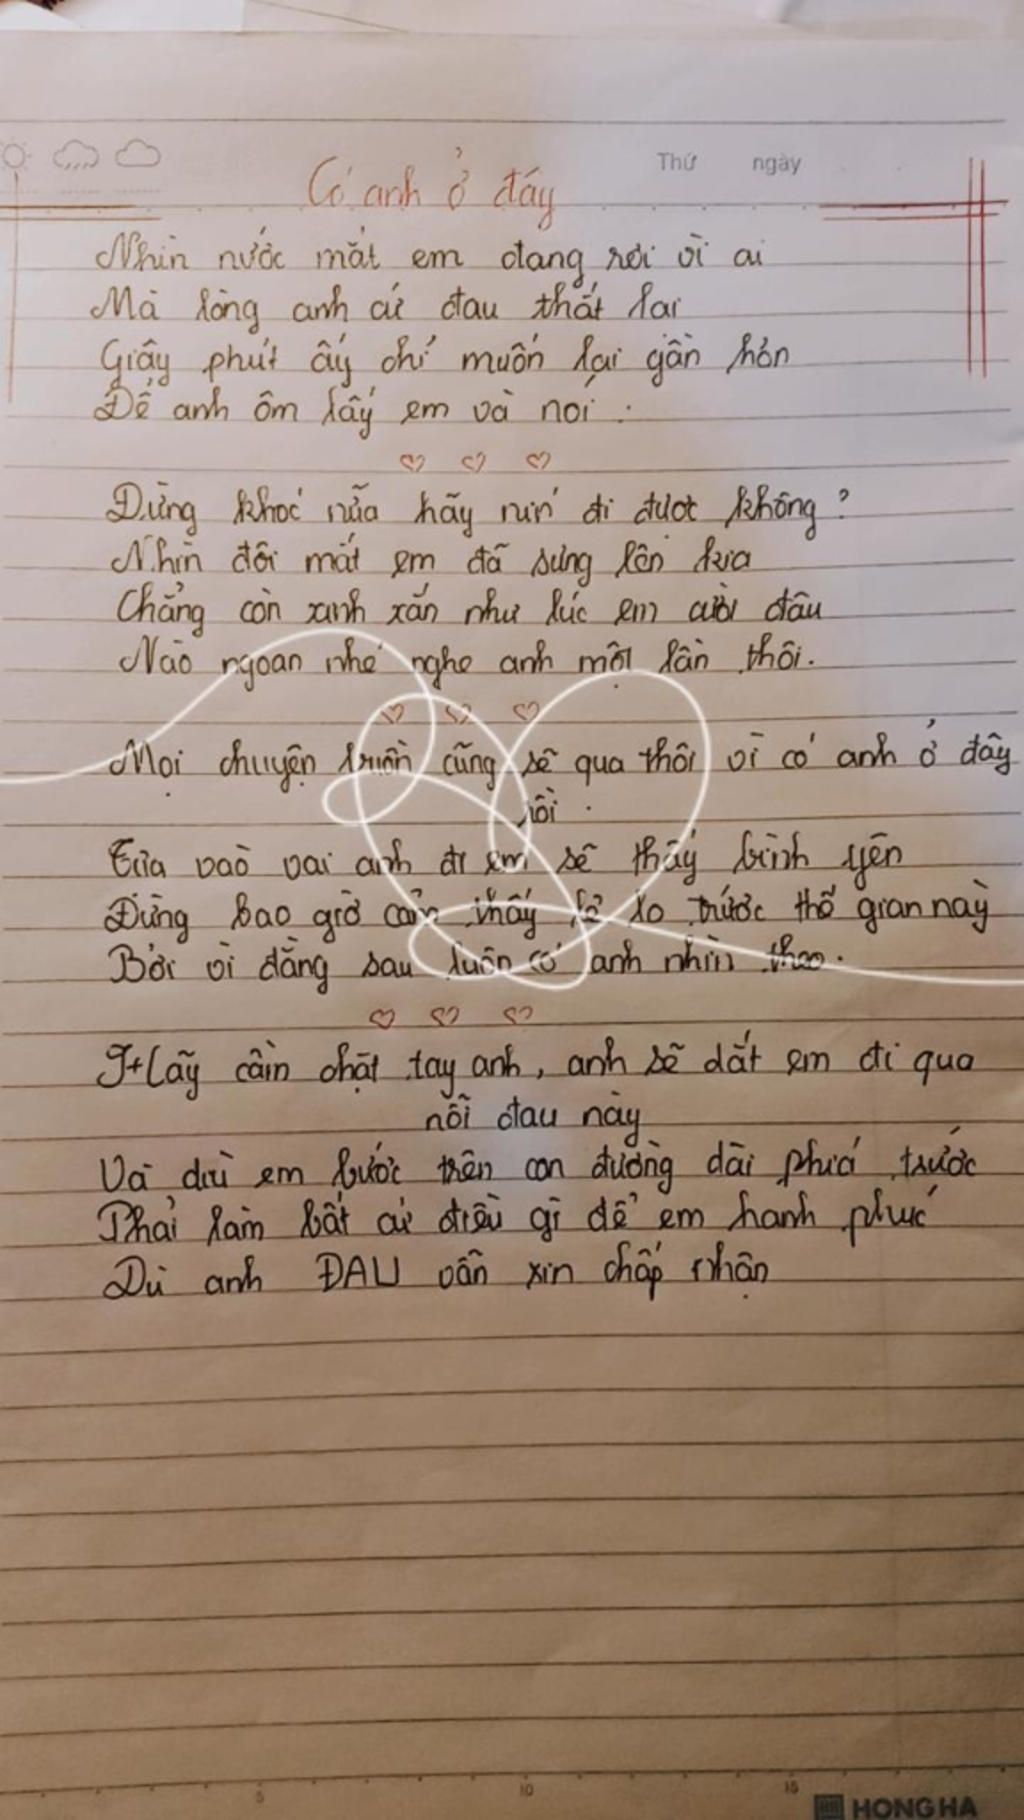 Thứ ngày
Có anh ở đây
Nhìn nước mắt em đang rơi vì ai
Mà lòng anh cứ đau thắt lại
Giây phút ấy chỉ muốn lại gần hơn
Để anh ôm lấy em và nói :
Đừng khóc nữa hãy nín đi được không ?
Nhìn đôi mắt em đã sưng lên kìa
Chẳng còn xinh xắn như lúc em cười đâu
Nào ngoan nhé nghe anh một lần thôi.
Mọi chuyện buồn cũng sẽ qua thôi vì có anh ở đây
rồi .
Tựa vào vai anh đi em sẽ thấy bình yên
Đừng bao giờ cảm thấy lẻ loi trước thế gian này
Bởi vì đằng sau luôn có anh nhìn theo.
Hãy cầm chặt tay anh, anh sẽ dắt em đi qua
nỗi đau này
Và dù em bước trên con đường dài phía trước
Phải làm bất cứ điều gì để em hạnh phúc
Dù anh ĐAU vẫn xin chấp nhận
5 10 15
HONG HA